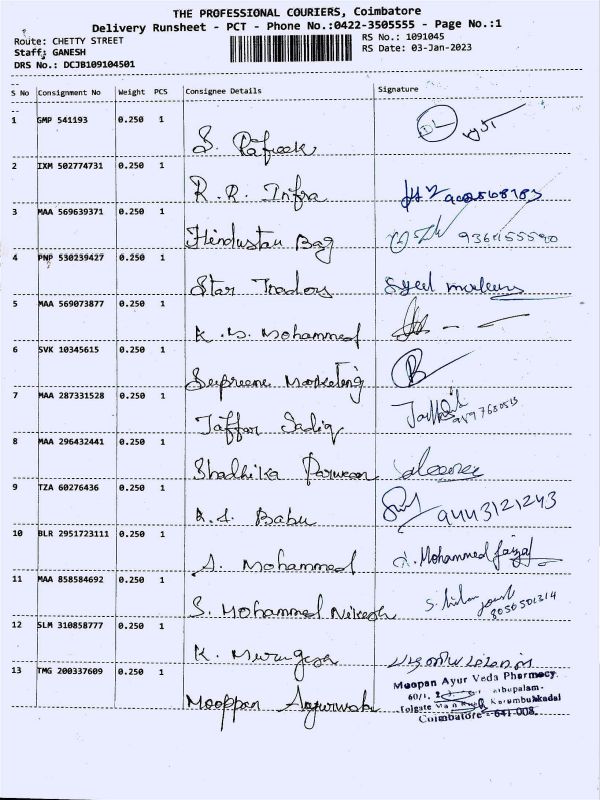 THE PROFESSIONAL COURIERS, Coimbatore
Delivery Runsheet - PCT - Phone No.:0422-3505555 - Page No.:1
Route: CHETTY STREET
RS No.: 1091045
Staff: GANESH
RS Date: 03-Jan-2023
DRS No.: DCJB109104501
S No Consignment No Weight PCS Consignee Details Signature
1 GMP 541193 0.250 1
S. Rafeek
2 IXM 502774731 0.250 1
R. R. Infra
3 MAA 569639371 0.250 1
Hindustan Bag
4 PNP 530239427 0.250 1
Star Traders Syed
5 MAA 569073877 0.250 1
K. S. Mohammed
6 SVK 10345615 0.250 1
Supreme Marketing
7 MAA 287331528 0.250 1
Jaffar Sadiq
8 MAA 296432441 0.250 1
Shadhika Parveen
9 TZA 60276436 0.250 1
Babu 9443121243
10 BLR 2951723111 0.250 1
A. Mohammed Mohammed faizal
11 MAA 858584692 0.250 1
S. Mohammed
12 SLM 310858777 0.250 1
K.
13 TMG 200337609 0.250 1
Mooppan
Moopan Ayur Veda Pharmacy
60/1,
Karumbukkadai
Coimbatore - 641 008.